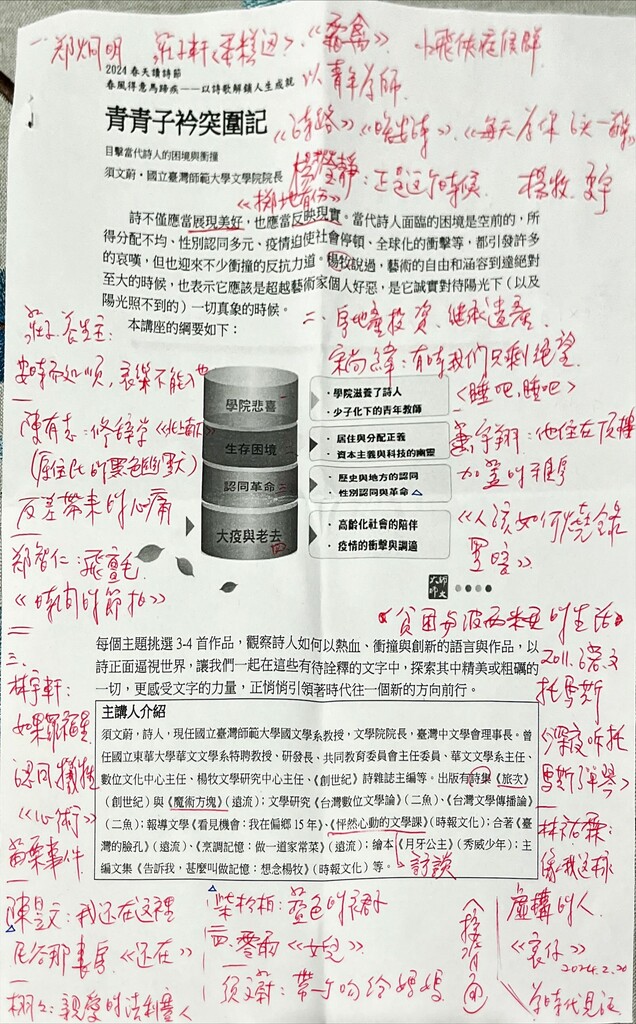 一 郑炯明 莊子軒《蛋糕逆》、《霸禽》 小飛俠症候群
2024 春天讀詩節
春風得意馬蹄疾——以詩歌解鎖人生成就
以青年为師
青青子衿突圍記
《詩路》《晚安詩》、《每天为你
目擊當代詩人的困境與衝撞
須文蔚・國立臺灣師範大學文學院院長
楊瀅靜：正是这个時候 楊牧
《擲地有份》
詩不僅應當展現美好，也應當反映現實。當代詩人面臨的困境是空前的，所
得分配不均、性別認同多元、疫情迫使社會停頓、全球化的衝擊等，都引發許多
的哀嘆，但也迎來不少衝撞的反抗力道。楊牧說過，藝術的自由和涵容到達絕對
至大的時候，也表示它應該是超越藝術家個人好惡，是它誠實對待陽光下（以及
陽光照不到的）一切真象的時候。
本講座的綱要如下：
二、房地產投資、继承遺產
宋尚緯：有時我們只剩绝望
《睡吧，睡吧》
莊子养生主：
安時而处順，哀樂不能入也
陳有志：修辞学《北上南下》
（居住正的黑色幽默）
反差帶來的心痛
郑智仁：飛氊
《時间的節拍》
學院悲喜 一
・學院滋養了詩人
・少子化下的青年教師
生存困境 二
・居住與分配正義
・資本主義與科技的幽靈
認同革命 三
・歷史與地方的認同
・性別認同與革命 △
大疫與老去 四
・高齡化社會的陪伴
・疫情的衝擊與調適
宇翔：他住在頂樓
加蓋的
《人该如何燒錄
黑暗》
大師
師大
《貧困与波西米亞的生活》
每個主題挑選 3-4 首作品，觀察詩人如何以熱血、衝撞與創新的語言與作品，以
詩正面逼視世界，讓我們一起在這些有待詮釋的文字中，探索其中精美或粗礪的
一切，更感受文字的力量，正悄悄引領著時代往一個新的方向前行。
三、
林宇軒：
如果羅福星
認同犧牲
《心術》
苗栗事件
主講人介紹
須文蔚，詩人，現任國立臺灣師範大學國文學系教授，文學院院長，臺灣中文學會理事長。曾
任國立東華大學華文文學系特聘教授、研發長、共同教育委員會主任委員、華文文學系主任、
數位文化中心主任、楊牧文學研究中心主任、《創世紀》詩雜誌主編等。出版有詩集《旅次》
（創世紀）與《魔術方塊》（遠流）；文學研究《台灣數位文學論》（二魚）、《台灣文學傳播論》
（二魚）；報導文學《看見機會：我在偏鄉 15 年》、《怦然心動的文學課》（時報文化）；合著《臺
灣的臉孔》（遠流）、《烹調記憶：做一道家常菜》（遠流）；繪本《月牙公主》（秀威少年）；主
編文集《告訴我，甚麼叫做記憶：想念楊牧》（時報文化）等。
訪談
托馬斯
《深夜听托
馬斯弹琴》
林祐霖：
像我这樣
虛構的人
《哀仔》
2024.2.20
陳昱文：我还在这裡
民谷那末房《还在》
柴柏松：藍色的裙
四、零雨《女兒》
须文蔚：帶一个吻给媽媽
栩栩：親愛的法利賽人
（接背面）